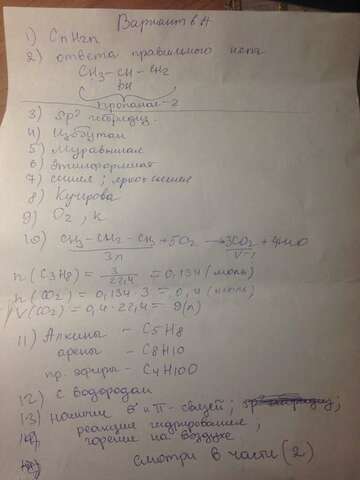 Вариант 6А
1) CnH2n
2) ответа правильного нет
CH3 - CH - CH2
OH
пропанол-2
3) Sp² гибридиз.
4) Изобутан
5) Муравьиная
6) Этилформиат
7) синий; ярко-синий
8) Кучерова
9) O2, к
10) CH3-CH2-CH3 + 5O2 → 3CO2 + 4H2O
3л V-?
n(C3H8) = 3/22,4 = 0,134 (моль)
n(CO2) = 0,134 · 3 = 0,4 (моль)
V(CO2) = 0,4 · 22,4 = 9(л)
11) Алкины - C5H8
арены - C8H10
пр. эфиры - C4H10O
12) с водородом
13) наличие σ и π-связей;
реакция гидрирования;
горение на воздухе
14) смотри в части (2)